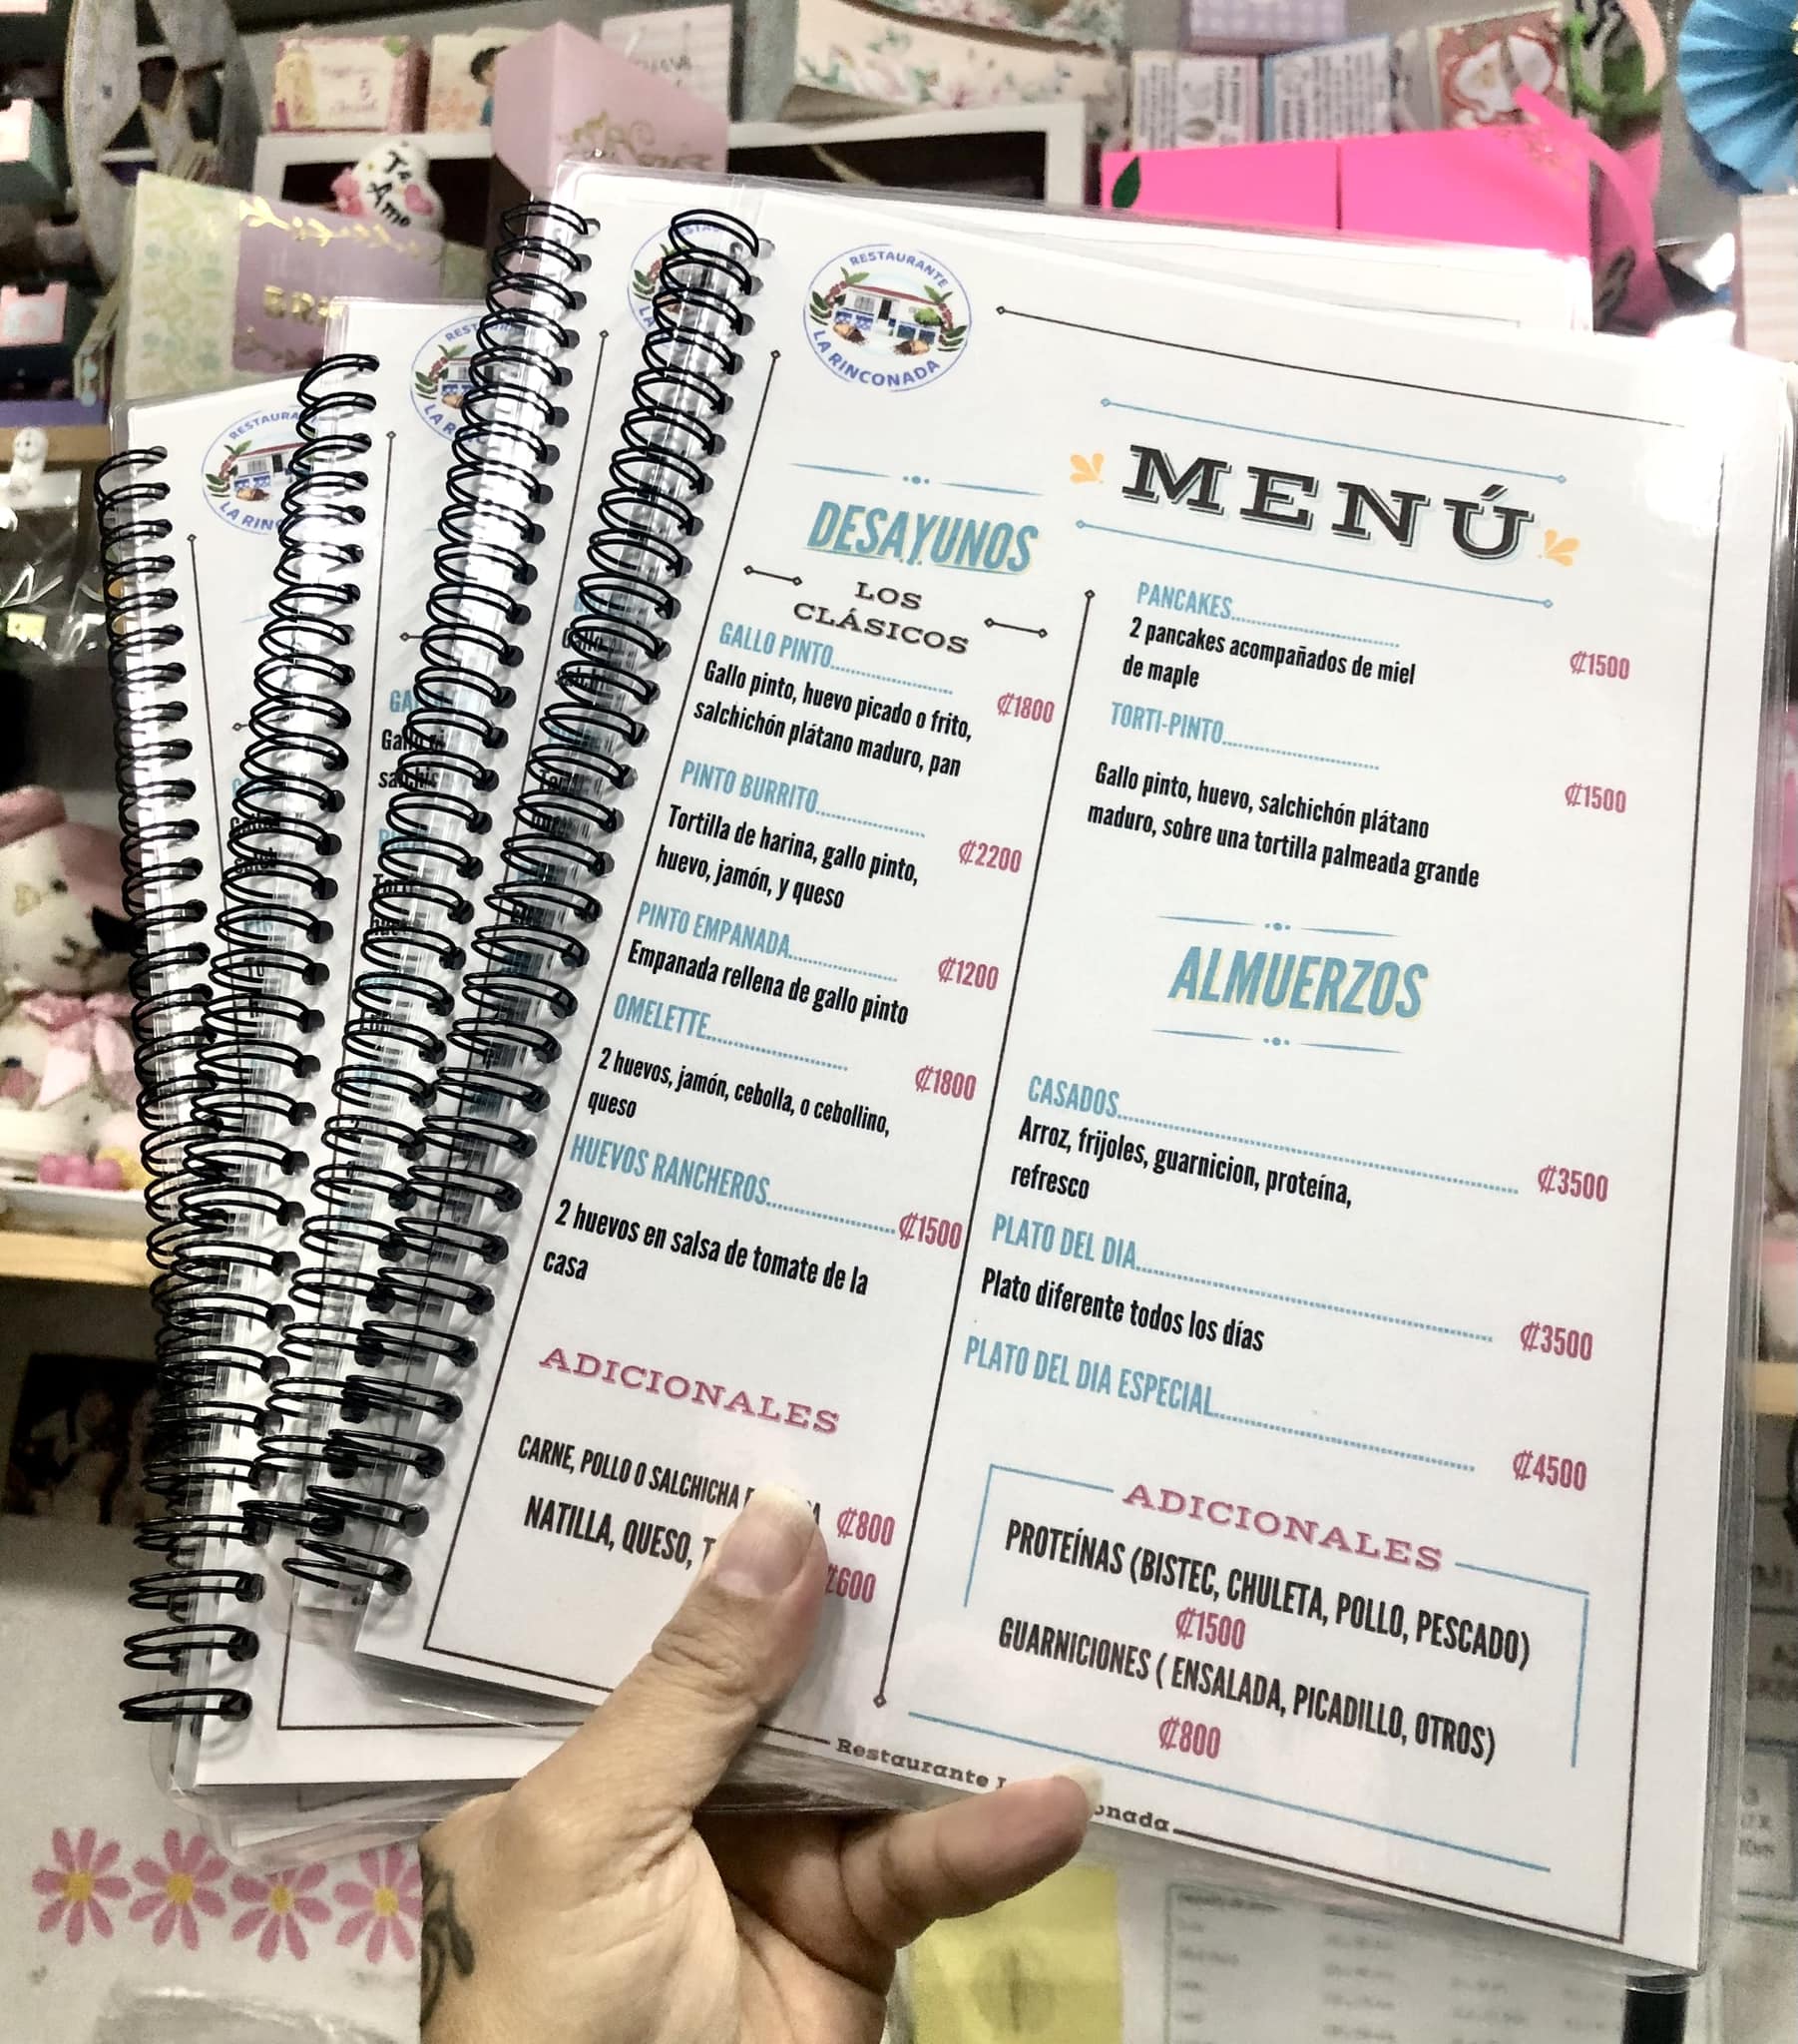 Te
Amo
RESTAURANTE
LA RINCONADA
MENÚ
DESAYUNOS
LOS
CLÁSICOS
GALLO PINTO
₡1800
Gallo pinto, huevo picado o frito,
salchichón plátano maduro, pan
PINTO BURRITO
₡2200
Tortilla de harina, gallo pinto,
huevo, jamón, y queso
PINTO EMPANADA
₡1200
Empanada rellena de gallo pinto
OMELETTE
₡1800
2 huevos, jamón, cebolla, o cebollino,
queso
HUEVOS RANCHEROS
₡1500
2 huevos en salsa de tomate de la
casa
ADICIONALES
CARNE, POLLO O SALCHICHA ₡800
NATILLA, QUESO, ₡600
PANCAKES
₡1500
2 pancakes acompañados de miel
de maple
TORTI-PINTO
₡1500
Gallo pinto, huevo, salchichón plátano
maduro, sobre una tortilla palmeada grande
ALMUERZOS
CASADOS
₡3500
Arroz, frijoles, guarnicion, proteína,
refresco
PLATO DEL DIA
₡3500
Plato diferente todos los días
PLATO DEL DIA ESPECIAL
₡4500
ADICIONALES
PROTEÍNAS (BISTEC, CHULETA, POLLO, PESCADO)
₡1500
GUARNICIONES ( ENSALADA, PICADILLO, OTROS)
₡800
Restaurante